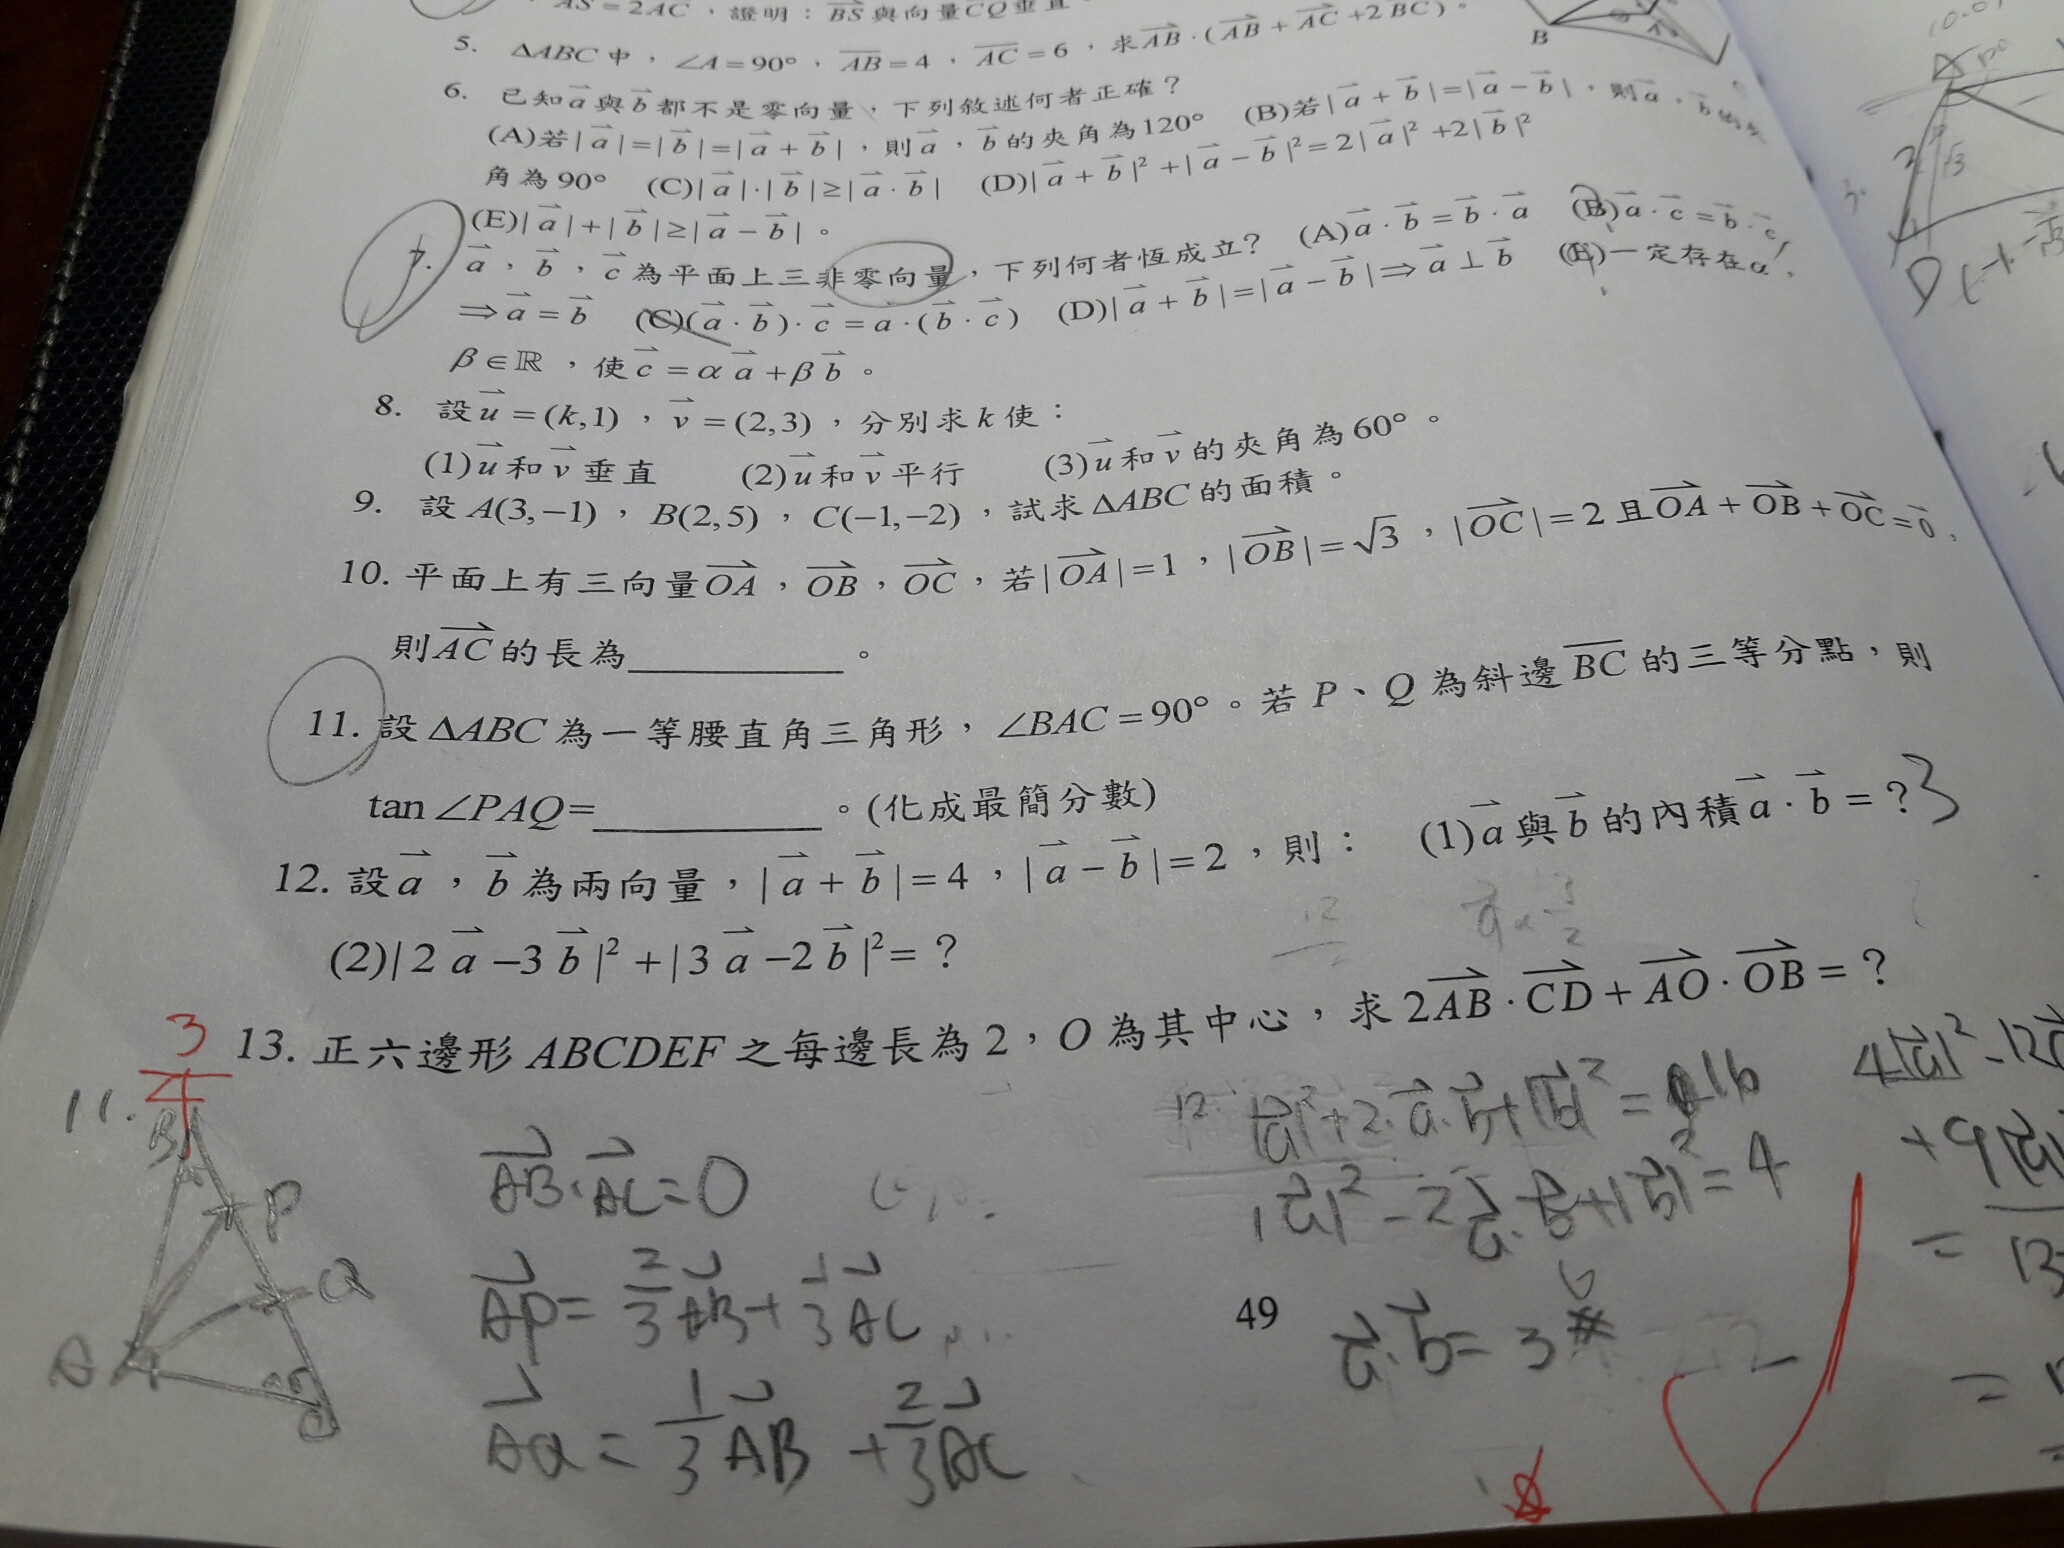 AS = 2AC，證明：BS 與向量 CQ 垂直。
5. ΔABC 中，∠A = 90°，AB = 4，AC = 6，求 AB · ( AB + AC + 2 BC )。
6. 已知 a 與 b 都不是零向量，下列敘述何者正確？
(A)若 | a | = | b | = | a + b |，則 a，b 的夾角為 120° (B)若 | a + b | = | a − b |，則 a、b
角為 90° (C)| a | · | b | ≥ | a · b | (D)| a + b |² + | a − b |² = 2| a |² + 2| b |²
(E)| a | + | b | ≥ | a − b |。
7. a，b，c 為平面上三非零向量，下列何者恆成立? (A) a · b = b · a (B) a · c = b · c
⇒ a = b (C)( a · b ) · c = a · ( b · c ) (D)| a + b | = | a − b | ⇒ a ⊥ b (E)一定存在 α、
β ∈ ℝ，使 c = α a + β b。
8. 設 u = (k,1)，v = (2,3)，分別求 k 使：
(1) u 和 v 垂直 (2) u 和 v 平行 (3) u 和 v 的夾角為 60°。
9. 設 A(3,−1)，B(2,5)，C(−1,−2)，試求 ΔABC 的面積。
10. 平面上有三向量 OA，OB，OC，若 | OA | = 1，| OB | = √3，| OC | = 2 且 OA + OB + OC = 0，
則 AC 的長為________。
11. 設 ΔABC 為一等腰直角三角形，∠BAC = 90°。若 P、Q 為斜邊 BC 的三等分點，則
tan ∠PAQ=________。(化成最簡分數)
12. 設 a，b 為兩向量，| a + b | = 4，| a − b | = 2，則： (1) a 與 b 的內積 a · b = ? 3
(2)| 2 a − 3 b |² + | 3 a − 2 b |² = ?
13. 正六邊形 ABCDEF 之每邊長為 2，O 為其中心，求 2 AB · CD + AO · OB = ?
11. 3/4
B
P
Q
A
C
AB · AC = 0
AP = 2/3 AB + 1/3 AC
AQ = 1/3 AB + 2/3 AC
12. |a|² + 2 · a · b + |b|² = 16
|a|² − 2 a · b + |b|² = 4
a · b = 3 #
49
4|a|² − 12
+ 9
B
2
√3
D